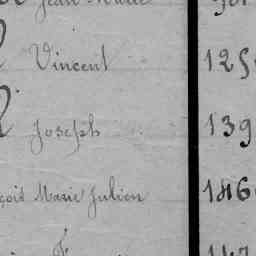 Jean Marie
Vincent 125
Joseph 139
çois Marie Julien 186